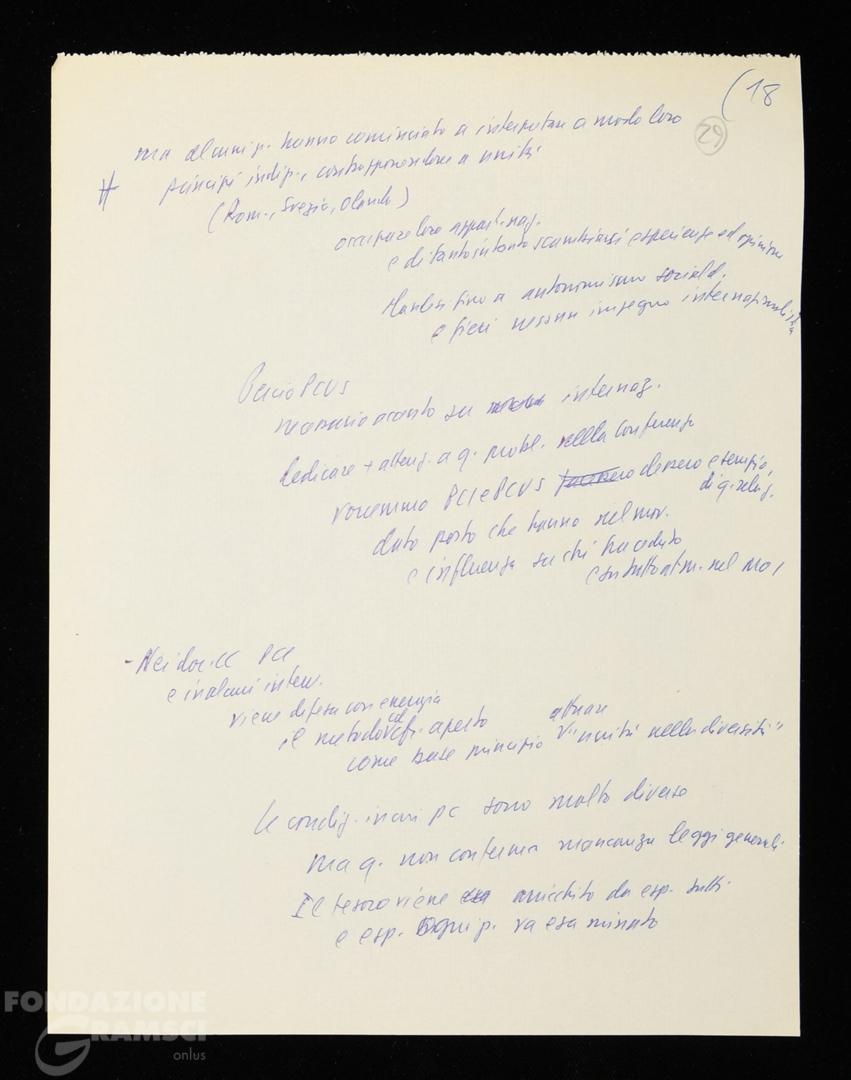 (18
29
ma alcuni p. hanno cominciato a interpretare a modo loro
# principî indip., contrapponendone a unità
(Rom., Svezia, Olanda)
loro appartenaz.
e di tanto in tanto scambiarsi esperienze ed opinioni
fino a autonomismo sociald.
e fieri nessun impegno internazionalista
Perciò PCUS
necessario accento su internaz.
dedicare + attenz. a q. probl. nella Conferenza
vorremmo PCI e PCUS dessero esempio,
di q. relaz.
dato posto che hanno nel mov.
e influenza su chi ha ceduto
e su tutto atm. nel MOI
- Nei doc. CC PCI
e in alcuni interv.
viene difesa con energia
il metodo cfr. aperto
come base principio attuare "unità nella diversità"
le condiz. in cui pc sono molto diverse
ma q. non conferma mancanza leggi generali.
Il tesoro viene arricchito da esp. tutti
e esp. ogni p. va esaminato
FONDAZIONE
GRAMSCI
onlus